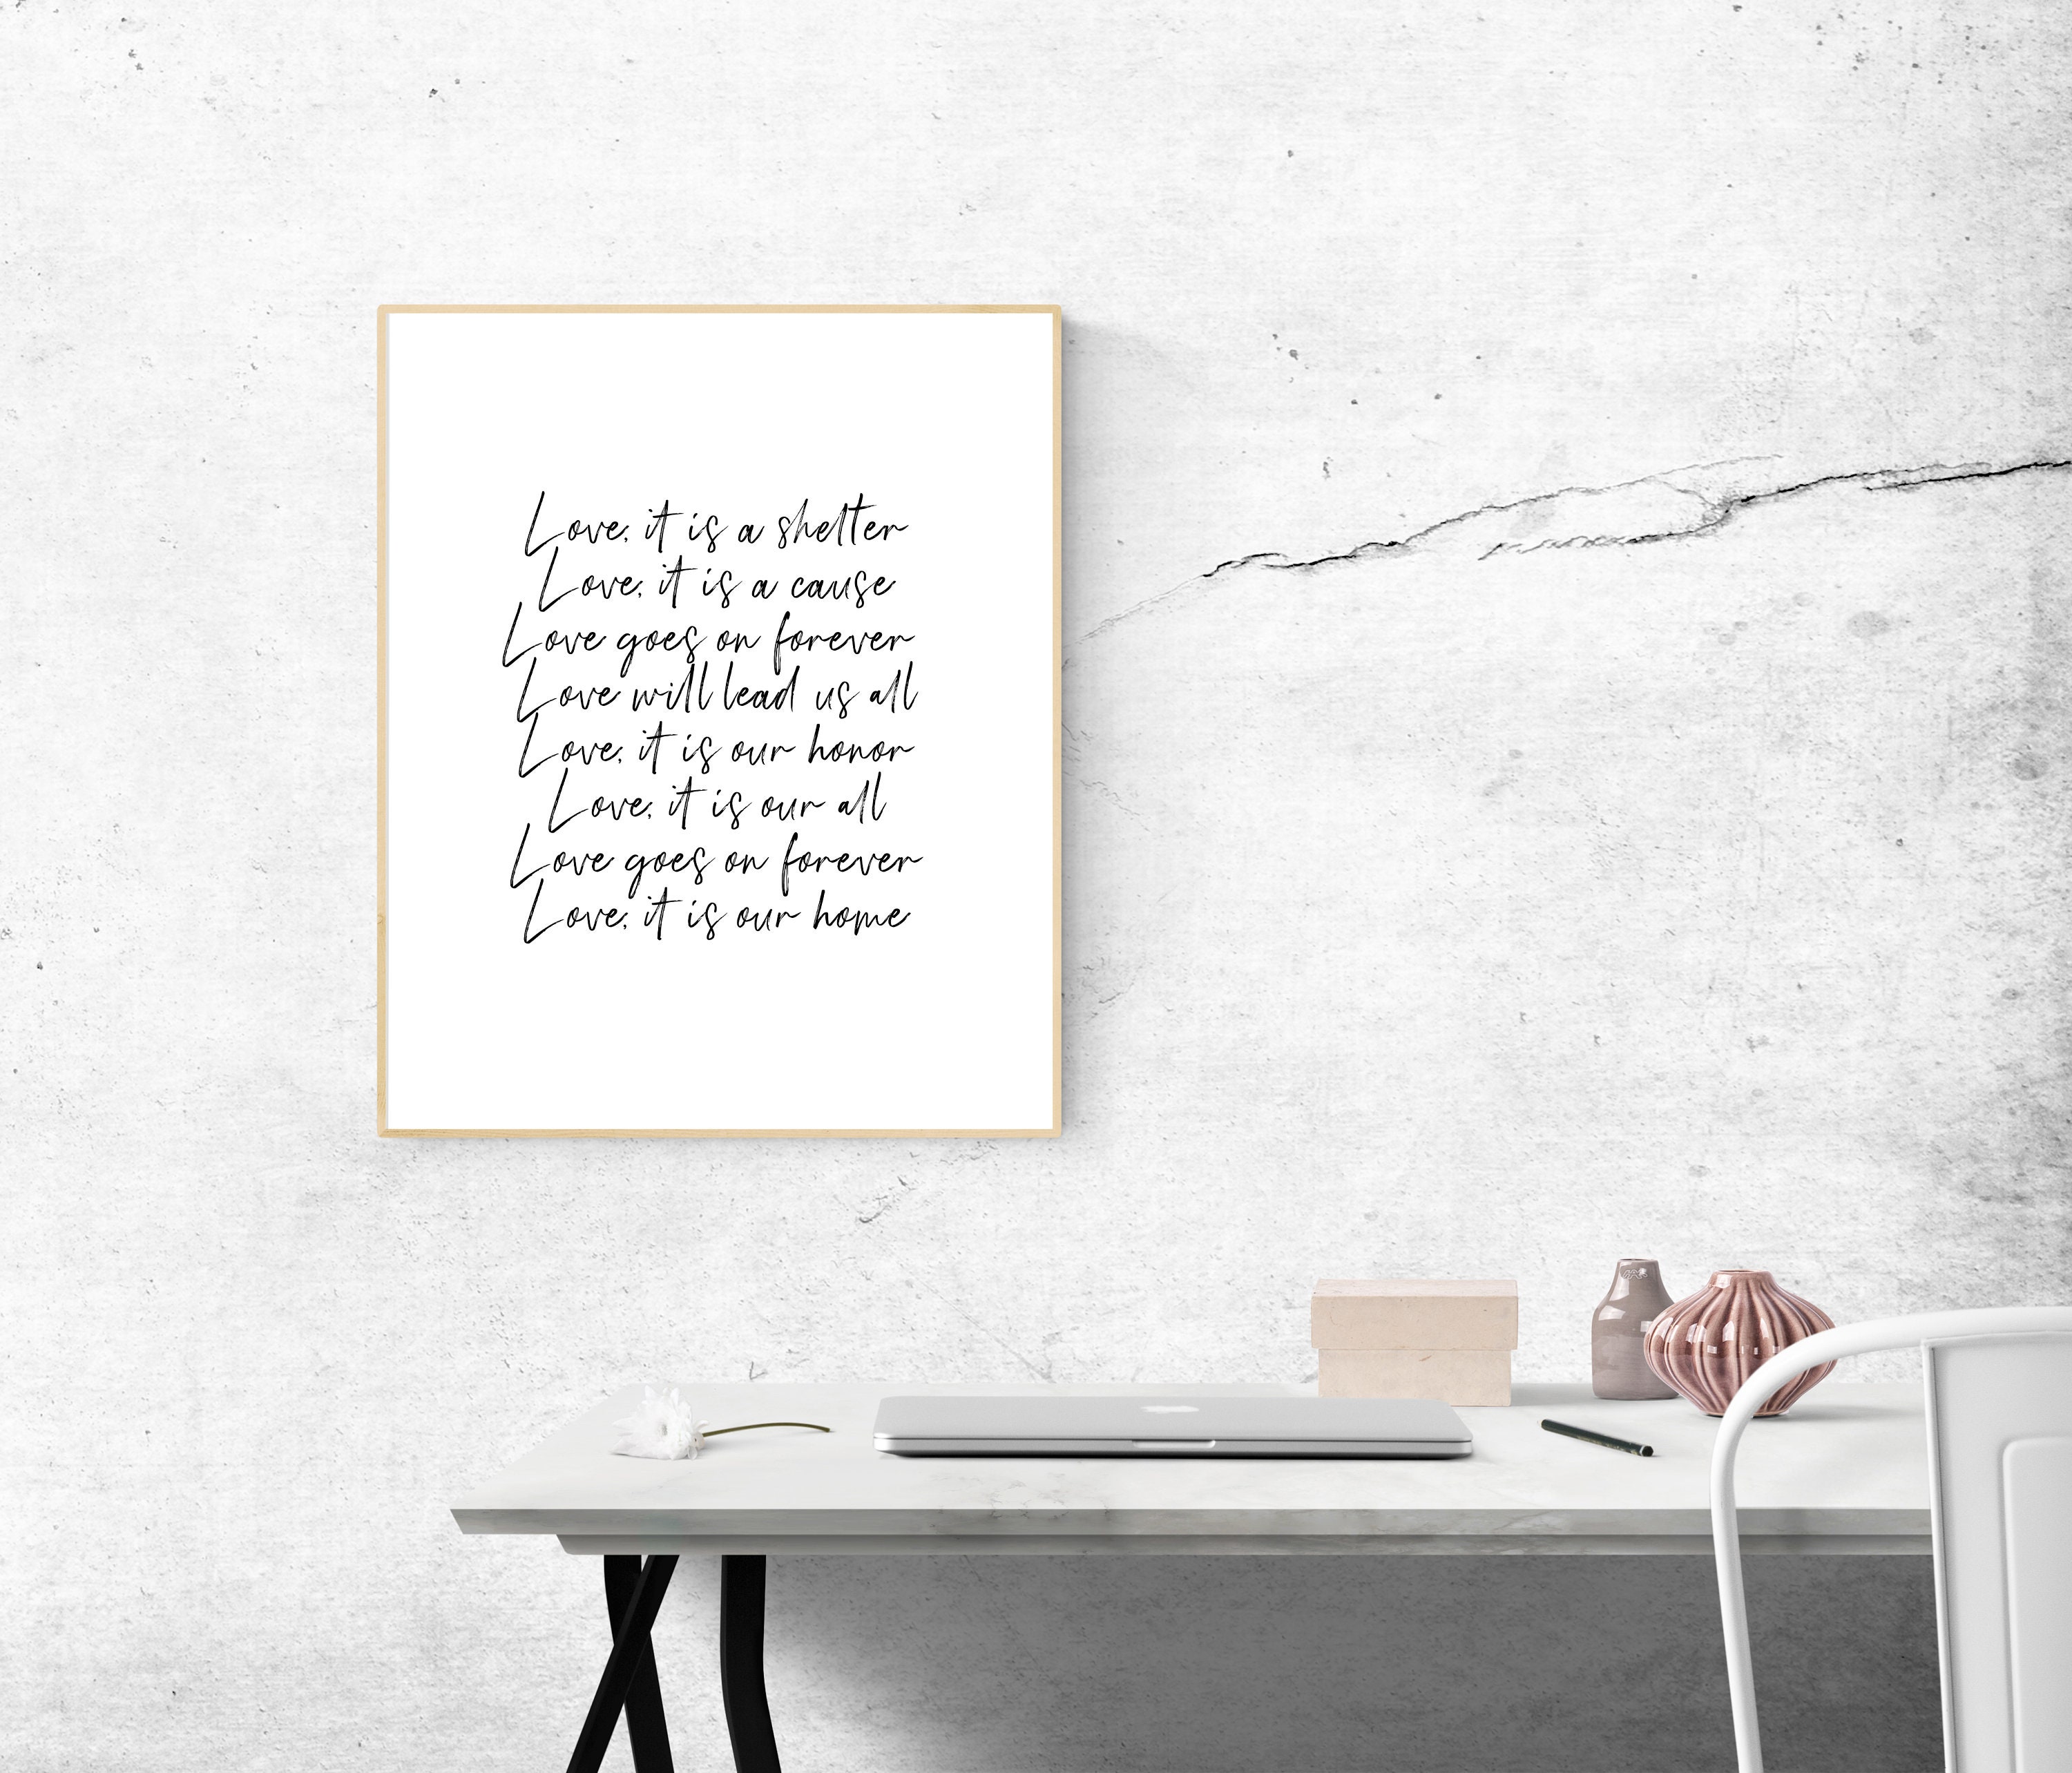 Love, it is a shelter
Love, it is a cause
Love goes on forever
Love will lead us all
Love, it is our honor
Love, it is our all
Love goes on forever
Love, it is our home